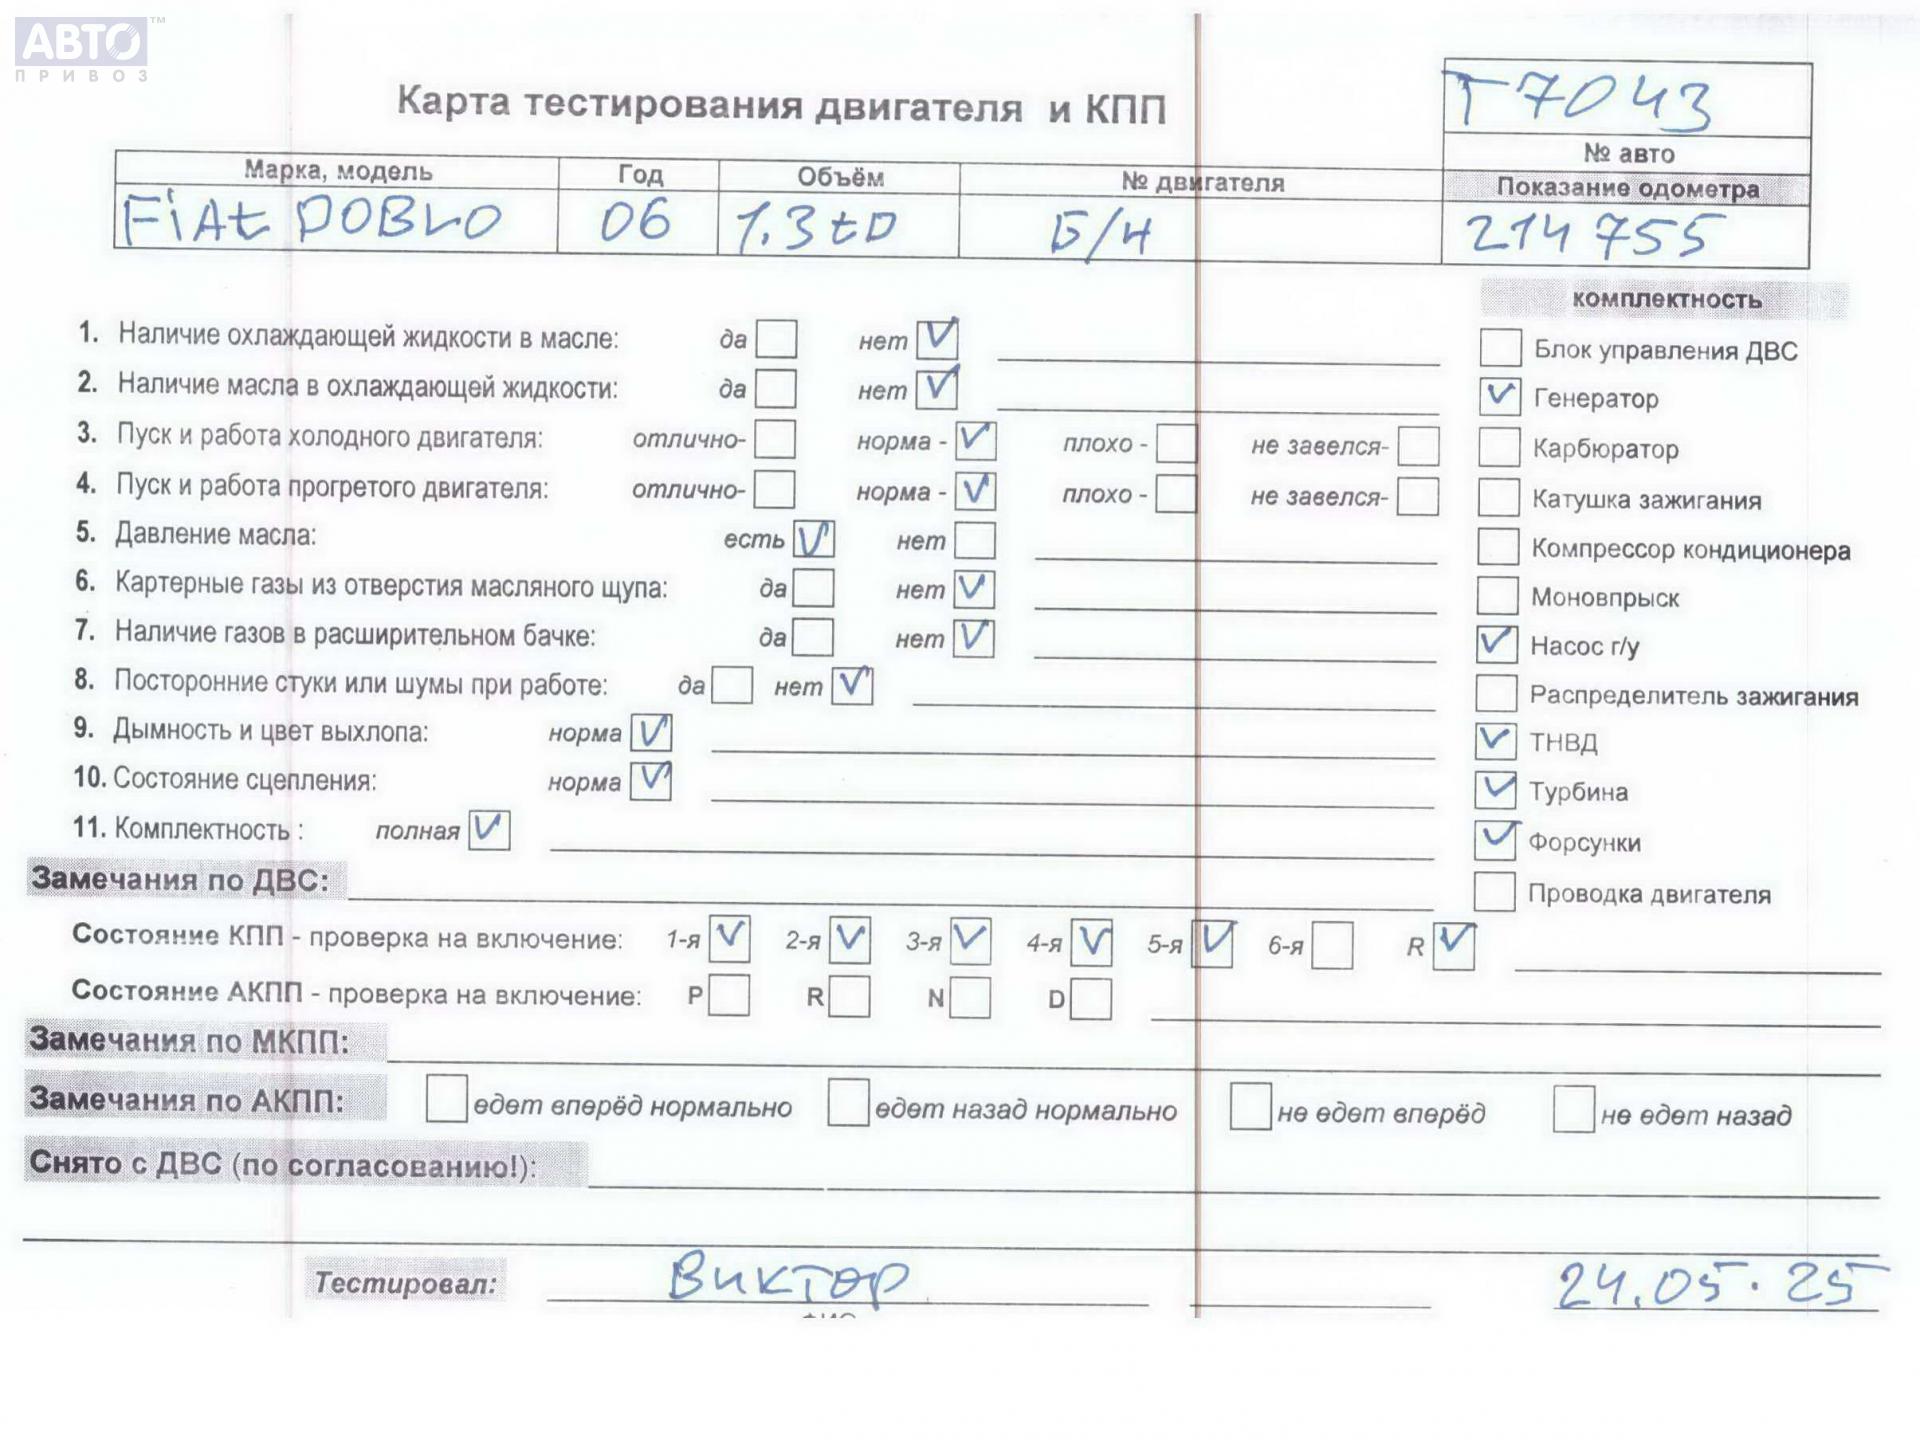 АВТО™
ПРИВОЗ
Карта тестирования двигателя и КПП
Т 7043
№ авто
Марка, модель Год Объём № двигателя Показание одометра
FiAt DOBLO 06 1.3 tD Б/Н 214 755
комплектность
1. Наличие охлаждающей жидкости в масле: да нет ✓
Блок управления ДВС
2. Наличие масла в охлаждающей жидкости: да нет ✓
✓ Генератор
3. Пуск и работа холодного двигателя: отлично- норма - ✓ плохо - не завелся-
Карбюратор
4. Пуск и работа прогретого двигателя: отлично- норма - ✓ плохо - не завелся-
Катушка зажигания
5. Давление масла: есть ✓ нет
Компрессор кондиционера
6. Картерные газы из отверстия масляного щупа: да нет ✓
Моновпрыск
7. Наличие газов в расширительном бачке: да нет ✓
✓ Насос г/у
8. Посторонние стуки или шумы при работе: да нет ✓
Распределитель зажигания
9. Дымность и цвет выхлопа: норма ✓
✓ ТНВД
10. Состояние сцепления: норма ✓
✓ Турбина
11. Комплектность : полная ✓
✓ Форсунки
Замечания по ДВС:
Проводка двигателя
Состояние КПП - проверка на включение: 1-я ✓ 2-я ✓ 3-я ✓ 4-я ✓ 5-я ✓ 6-я R ✓
Состояние АКПП - проверка на включение: P R N D
Замечания по МКПП:
Замечания по АКПП: едет вперёд нормально едет назад нормально не едет вперёд не едет назад
Снято с ДВС (по согласованию!):
Тестировал: Виктор 24.05.25